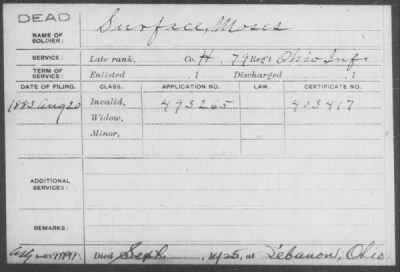 DEAD
NAME OF SOLDIER: Surface, Moses
SERVICE: Late rank, Co. H. 79 Regt Ohio Inf.
TERM OF SERVICE: Enlisted , 1 Discharged , 1
DATE OF FILING. CLASS. APPLICATION NO. LAW. CERTIFICATE NO.
1883 Aug 20 Invalid, 493265 403417
Widow,
Minor,
ADDITIONAL SERVICES:
REMARKS:
Died 1925, at Lebanon, Ohio